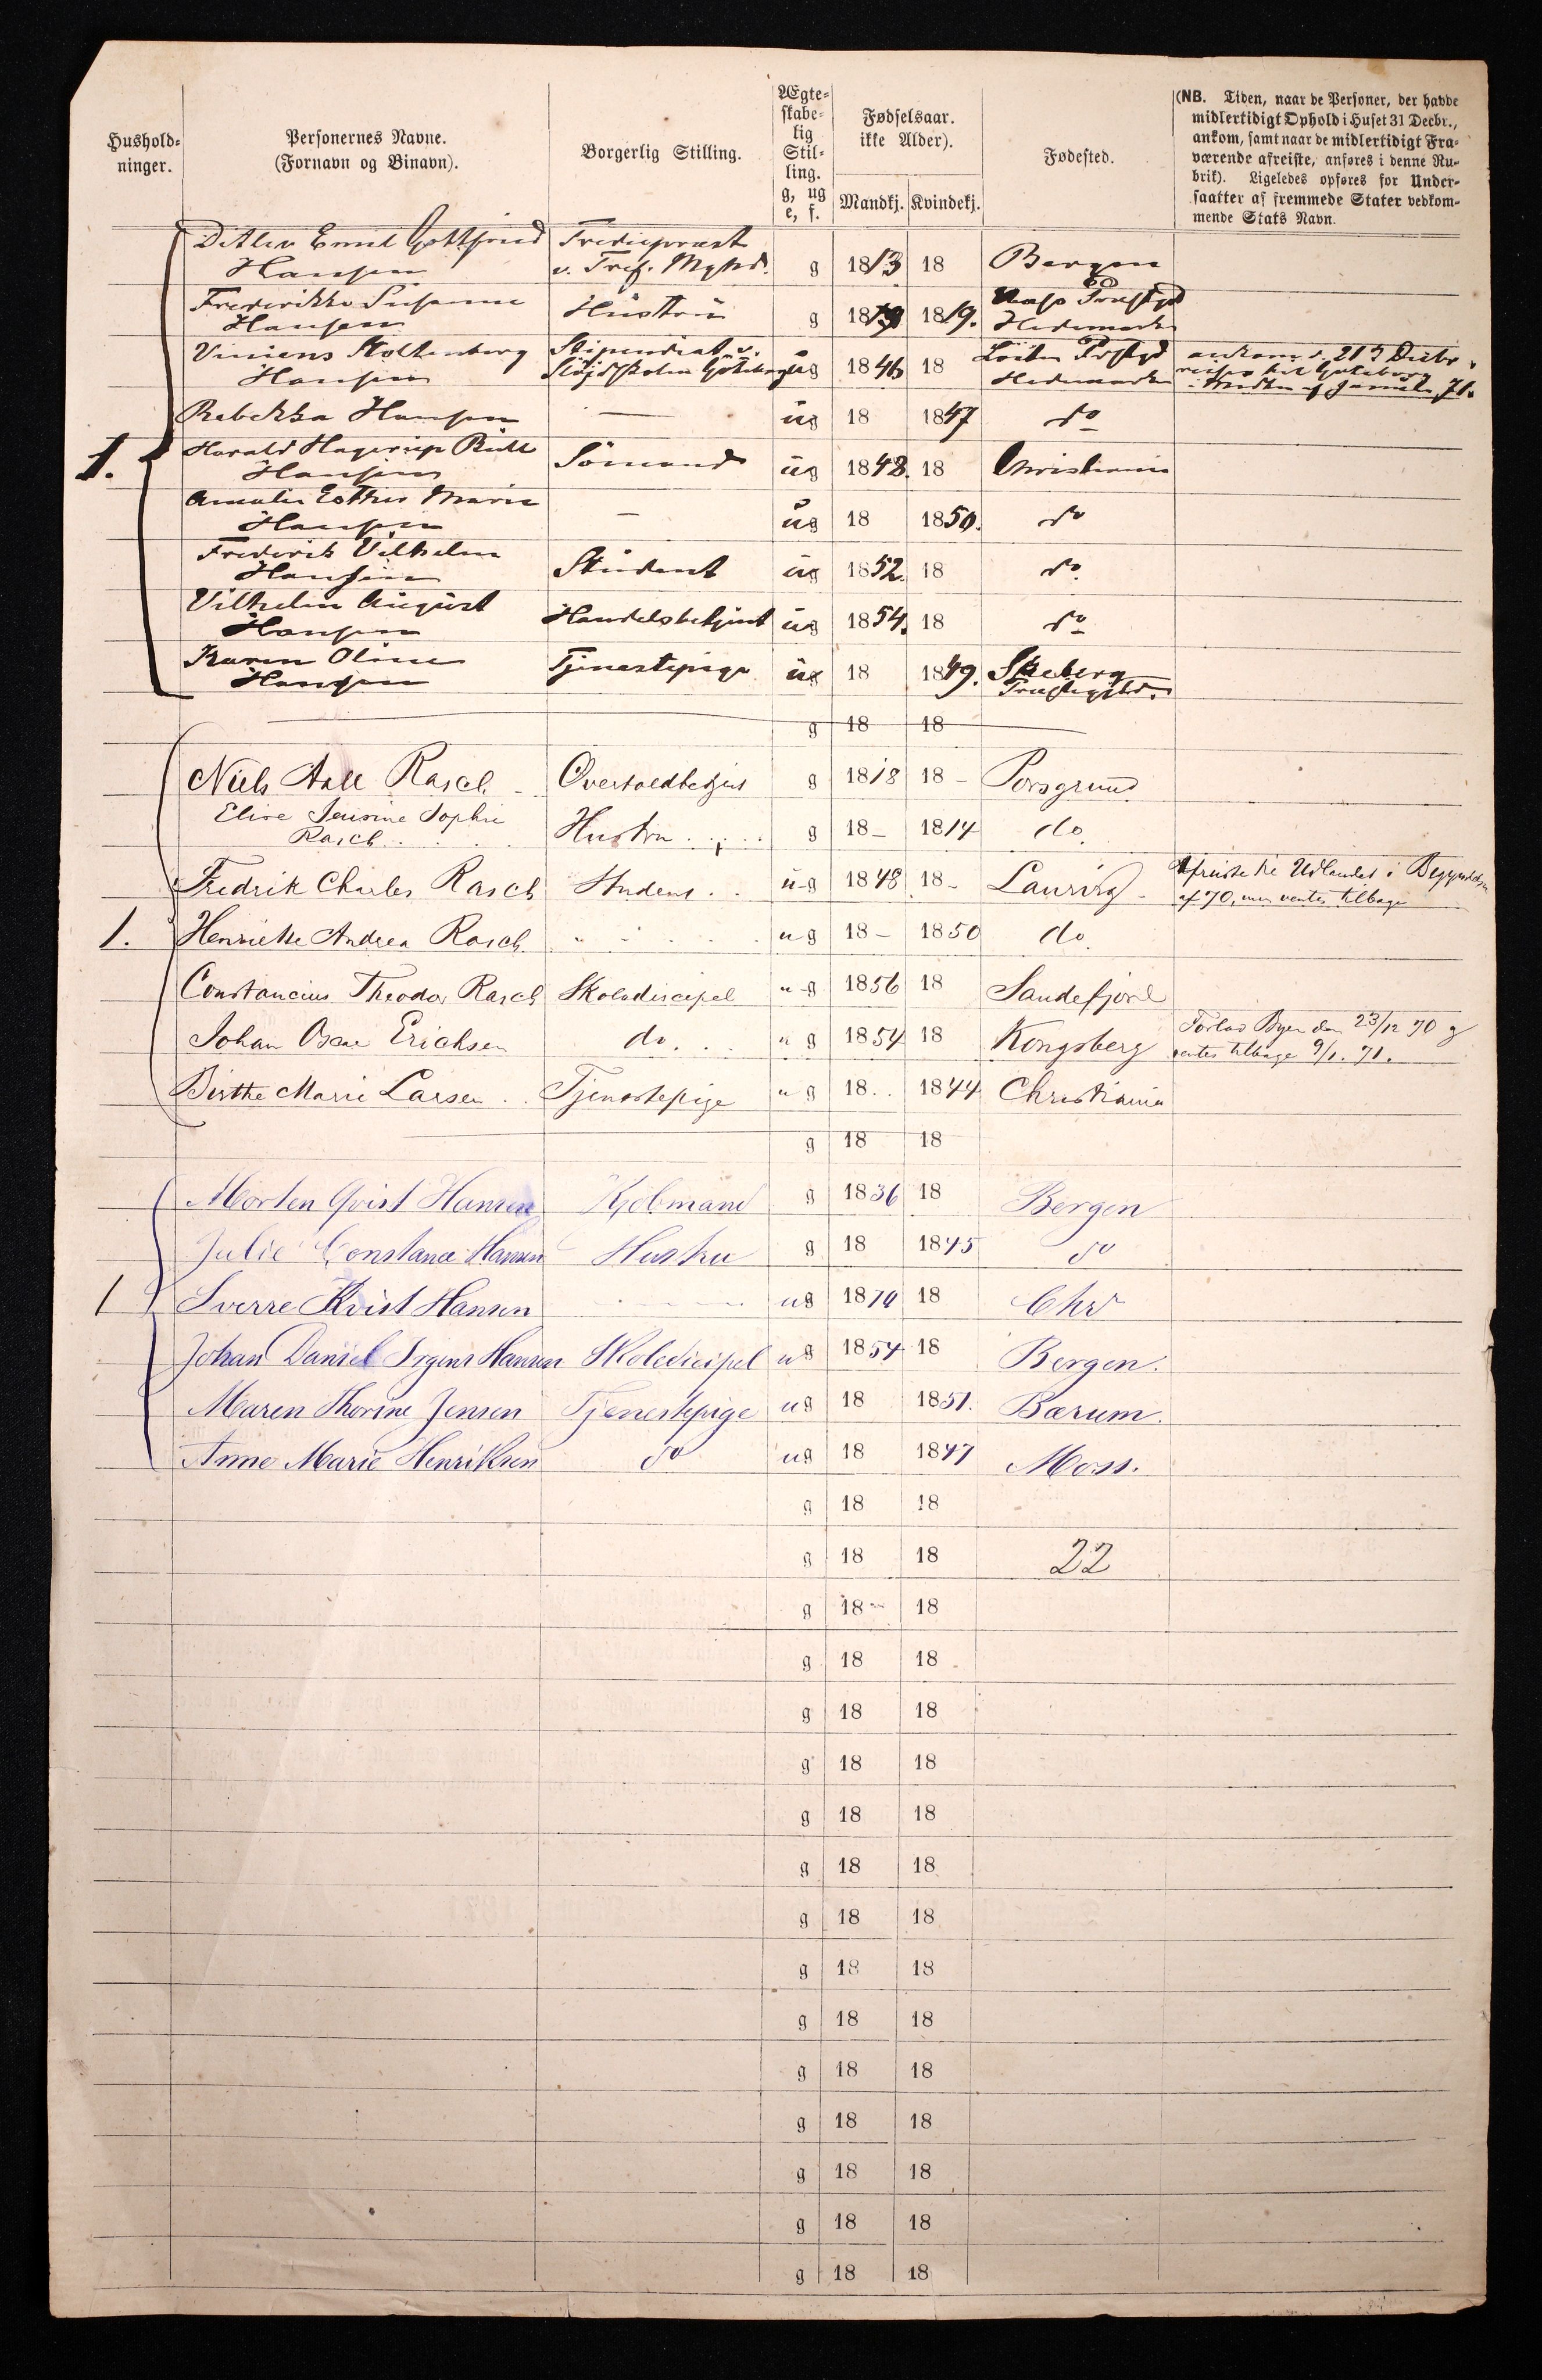 Hushold-
ninger.
Personernes Navne.
(Fornavn og Binavn).
Borgerlig Stilling.
Ægte-
skabe-
lig
Stil-
ling.
g, ug
e, f.
Fødselsaar.
ikke Alder).
Mandkj. Kvindekj.
Fødested.
(NB. Tiden, naar de Personer, der havde
midlertidigt Ophold i Huset 31 Decbr.,
ankom, samt naar de midlertidigt Fra-
værende afreiste, anføres i denne Ru-
brik). Ligeledes opføres for Under-
saatter af fremmede Stater vedkom-
mende Stats Navn.
Ditlev Emil Gottfried
Hansen
g 1813 18 Bergen
Frederikke Susanne
Hansen
Hüstrü g 18 1819.
Hedemarken
Stoltenberg
Hansen
Stipendiat v.
ug 1846 18
Hedemarken
Rebekka Hansen — üg 18 1847 do
1.
Harald Hagerup
Hansen
Sömand üg 1848. 18 Christiania
Amalie Esther Marie
Hansen
— üg 18 1850. do
Frederik Vilhelm
Hansen
Stüdent üg 1852. 18 do.
Vilhelm Aügüst
Hansen
Handelsbetjent üg 1854. 18 do
Karen Oline
Hansen
Tjenestepige üg 18 1849. Skeberg
Præstegjeld.
g 18 18
Niels Aall Rasch Overtoldbetjent g 1818 18 – Porsgrund
Elise Jensine Sophie
Rasch
Hustru g 18– 1814 do.
Fredrik Charles Rasch Student u-g 1848 18– Laurvig
Afreiste til Udlandet i Begyndelsen
af 70, men ventes tilbage
1. Henriette Andrea Rasch u g 18– 1850 do.
Constancius Theodor Rasch Skoledicipel u-g 1856 18 Sandefjord
Johan Oscar Erichsen do. u g 1854 18 Kongsberg
Forlod Byen den 23/12 70 og
ventes tilbage 9/1. 71.
Birthe Marie Larsen Tjenestepige u g 18.. 1844 Christiania
g 18 18
Morten Qvist Hansen Kjöbmand g 1836 18 Bergen
Julie Constance Hansen Hustru g 18 1845 do
1 Sverre Kvist Hansen ug 1870 18 Chra
Johan Daniel Irgens Hansen Skoledicipel ug 1854 18 Bergen.
Maren Thorine Jensen Tjenestepige ug 18 1851. Bærum.
Anne Marie Henriksen do ug 18 1847 Moss.
g 18 18
g 18 18 22
g 18 18
g 18 18
g 18 18
g 18 18
g 18 18
g 18 18
g 18 18
g 18 18
g 18 18
g 18 18
g 18 18
g 18 18
g 18 18
g 18 18